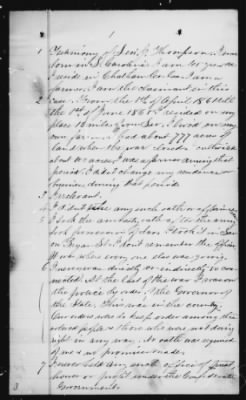 1 Testimony of Levi J. Thompson. I was
born in S. Carolina. I am 60 years
I reside in Chatham Co. Ga. I am a
farmer. I am the claimant in this
2 case. From the 1st of April 1861 till the
1st of June 1865 I resided on my
place 12 miles from Sav. I lived on my
own farm. I had about 777 acres of
land when the war closed. Cultivated
about 100 acres. I was a farmer during that
period. I didn't change my residence or
business during that period.
3 Irrelevant.
4 I didn't take any such oath or affirmation
5 I took the amnesty oath after the army
took possession of Sav. I took it in Sav
on Bryan St. I don't remember the officer
It was when every one else was going.
6 I never was directly or indirectly con
nected. At the last of the war I was on
the police by order of the Governor of
the State. This was in the county.
Our orders was to keep order among the
colored people & those who were not doing
right in any way. No oath was required
of us & no promise made.
7 I never held any such office of trust,
honor or profit under the Confederate
Government.
3